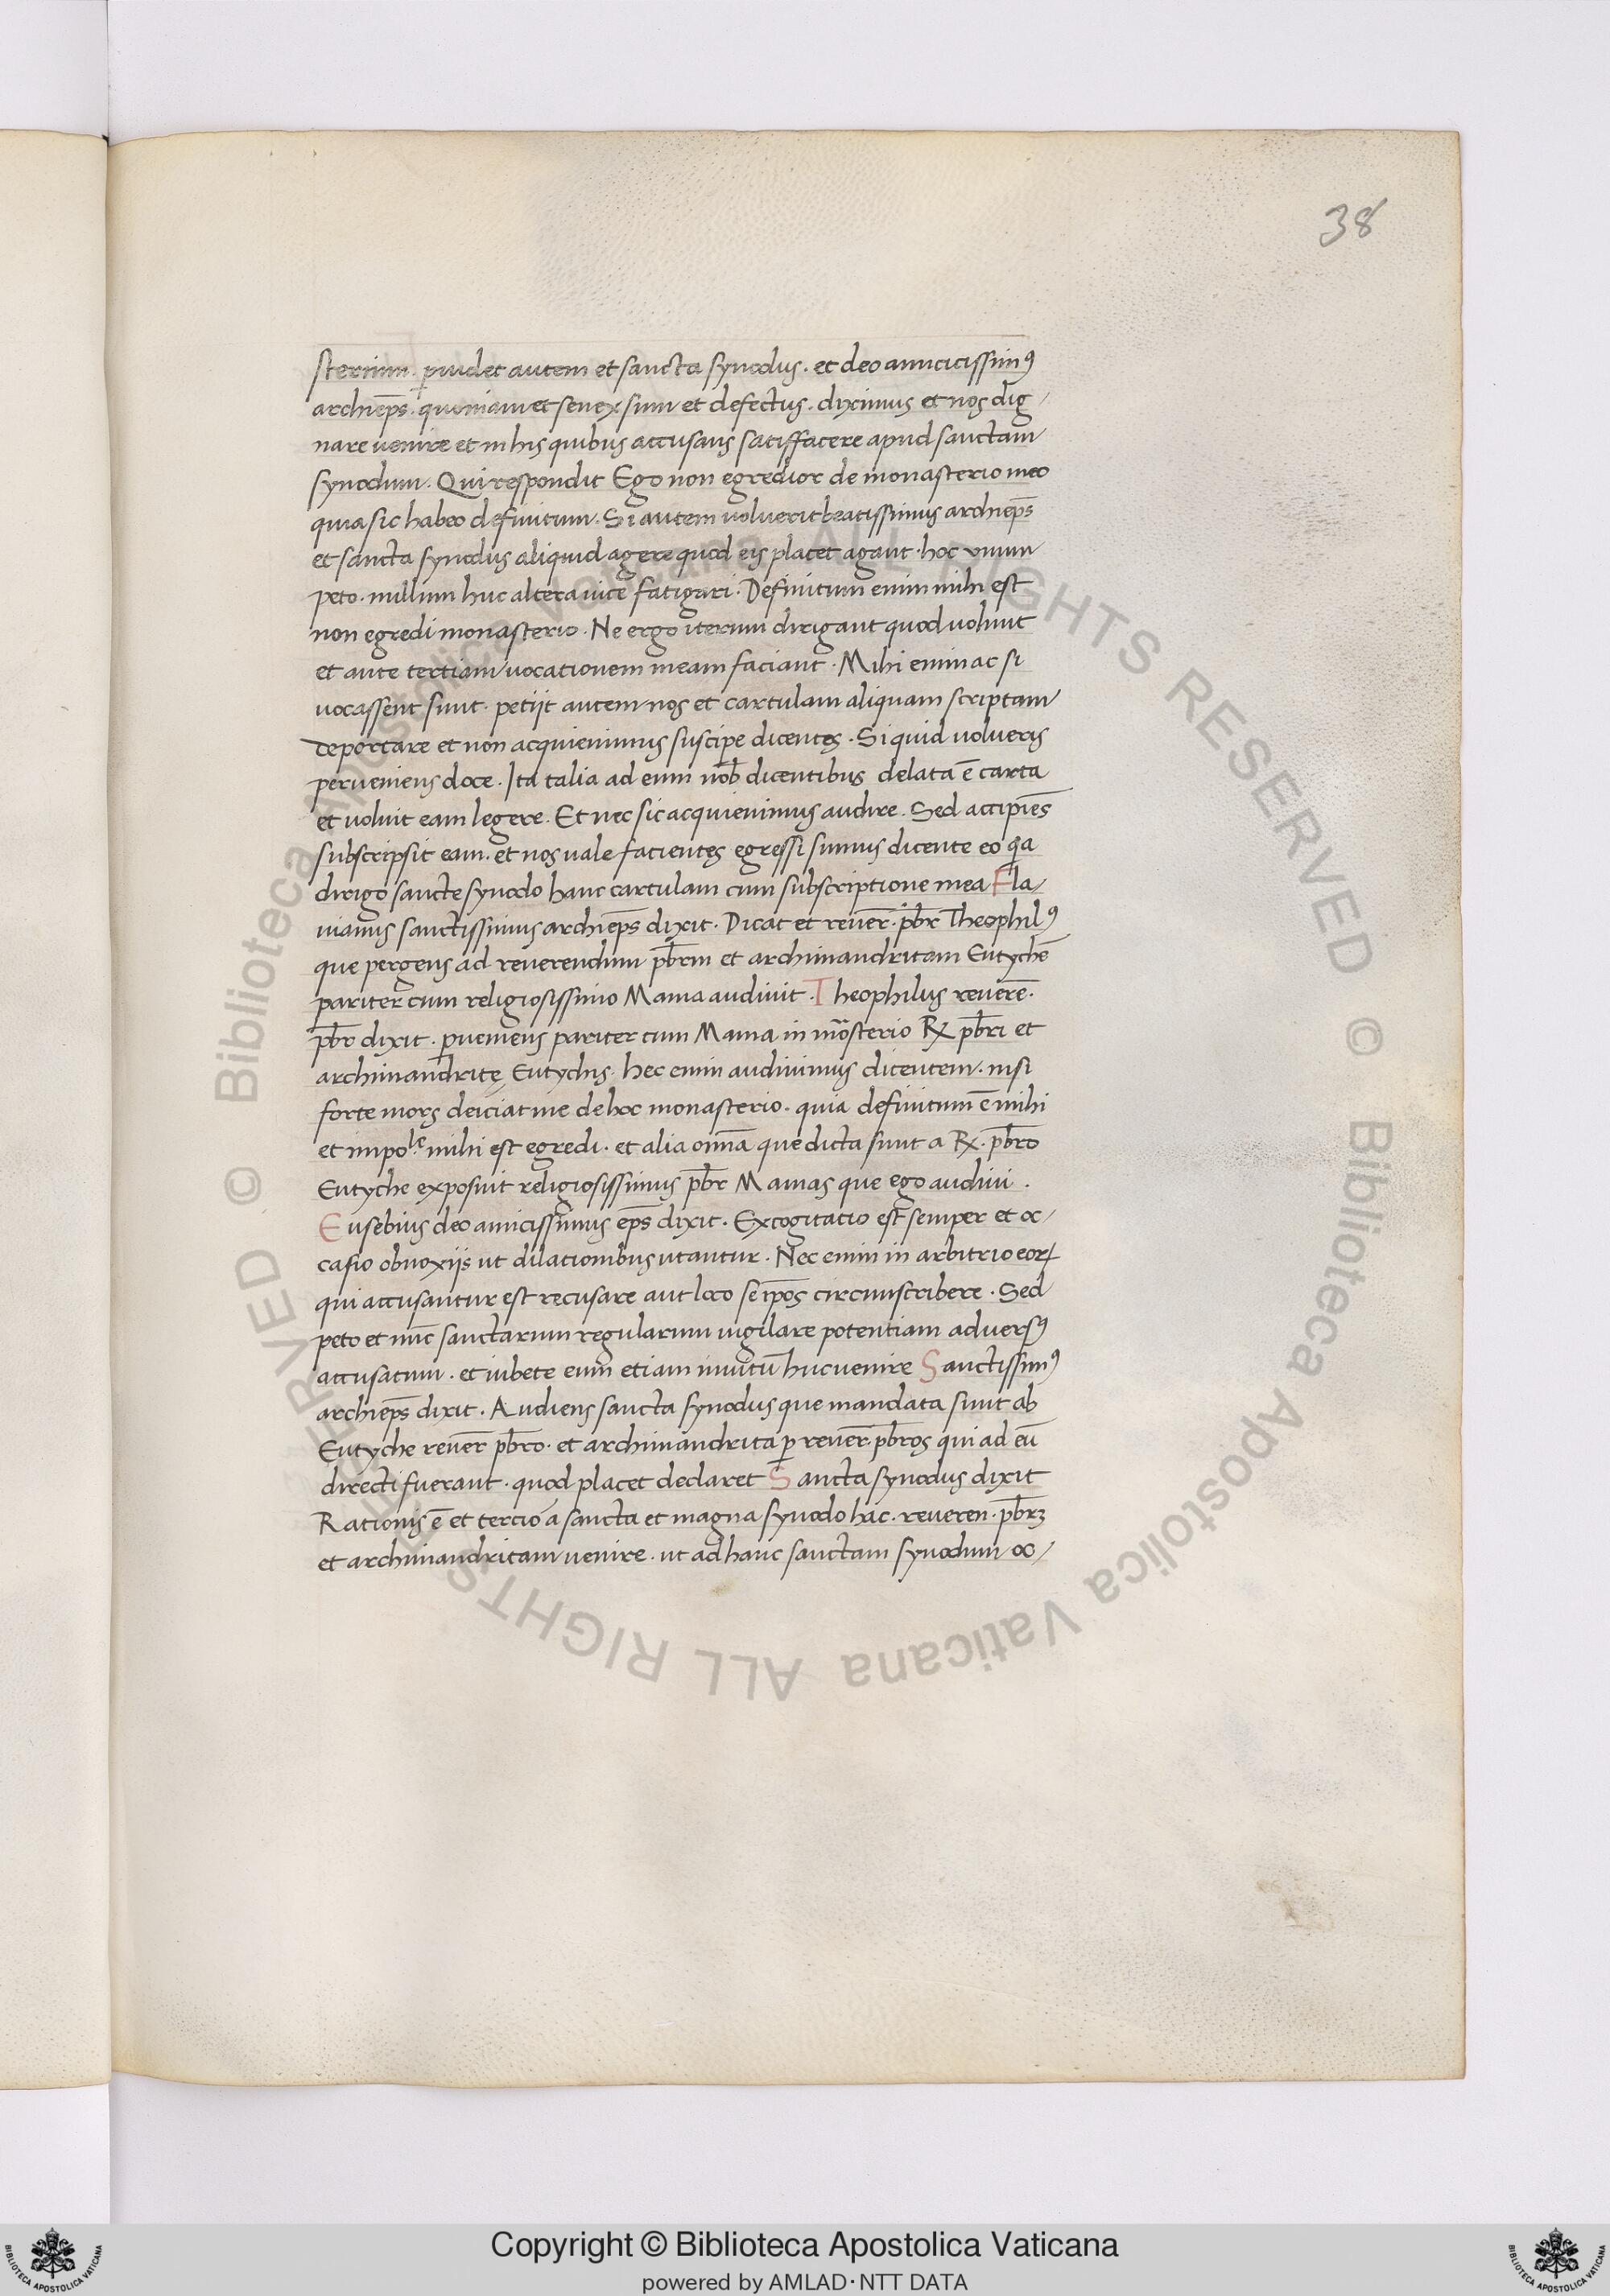 38
sterium. p̱uidet autem et sancta synodus. et deo amicicissimꝰ
archiep̄s. quoniam et senex sum et defectus. diximus et nos dig-
nare uenire et in his quibus accusaris satisffacere apud sanctam
synodum. Qui respondit Ego non egredior de monasterio meo
quia sic habeo definitum. Si autem uoluerit beatissimus archiep̄s
et sancta synodus aliquid agere quod eis placet agant. hoc unum
peto. nullum huc altera uice fatigari. Definitum enim mihi est
non egredi monasterio. Ne ergo iterum dirigant quod uolunt
et ante tertiam uocationem meam faciant. Mihi enim ac si
uocassent sunt. petijt autem nos et cartulam aliquam scriptam
deportare et non acquieuimus suscipe dicentes. Si quid uolueris
perueniens doce. Ita talia ad eum nob̄ dicentibus delata ē carta
et uoluit eam legere. Et nec sic acquieuimus audire. Sed accipiēs
subscripsit eam. et nos uale facientes egressi sumus dicente eo qa
dirigo sancte synodo hanc cartulam cum subscriptione mea Fla-
uianus sanctissimus archiep̄s dixit. Dicat et reuer̄. pb̄r Theophilꝰ
que pergens ad reuerendum pb̄rm et archimandritam Eutychē
pariter cum religiosissimo Mama audiuit. Theophilus reuerē.
pb̄r dixit. ꝑueniens pariter cum Mama in mōsterio Rx pb̄ri et
archimandritę Eutychis. hec enim audiuimus dicentem. nisi
forte mors deiciat me de hoc monasterio. quia definitum ē mihi
et impole mihi est egredi. et alia om̄a que dicta sunt a Rx. pb̄ro
Eutyche exposuit religiosissimus pb̄r Mamas que ego audiui.
Eusebius deo amicissimus ep̄s dixit. Excogitatio est semper et oc-
casio obnoxijs ut dilationibus utantur. Nec enim in arbitrio eoꝝ
qui accusantur est recusare aut loco se ip̄os circumscribere. Sed
peto et nūc sanctarum regularum uigilare potentiam aduersꝰ
accusatum. et iubete eum etiam inuitū huc uenire Sanctissimꝰ
archiep̄s dixit. Audiens sancta synodus que mandata sunt ab
Eutyche reuer̄ pb̄ro. et archimandrita ꝑ reuer̄. pb̄ros qui ad eū
directi fuerant. quod placet declaret Sancta synodus dixit
Rationis ē et tercio a sancta et magna synodo hac. reueren. pb̄rꝫ
et archimandritam uenire. ut ad hanc sanctam synodum oc-
© Biblioteca Apostolica Vaticana ALL RIGHTS RESERVED © Biblioteca Apostolica Vaticana ALL RIGHTS RESERVED
Copyright © Biblioteca Apostolica Vaticana
powered by AMLAD·NTT DATA
BIBLIOTECA APOSTOLICA VATICANA
BIBLIOTECA APOSTOLICA VATICANA